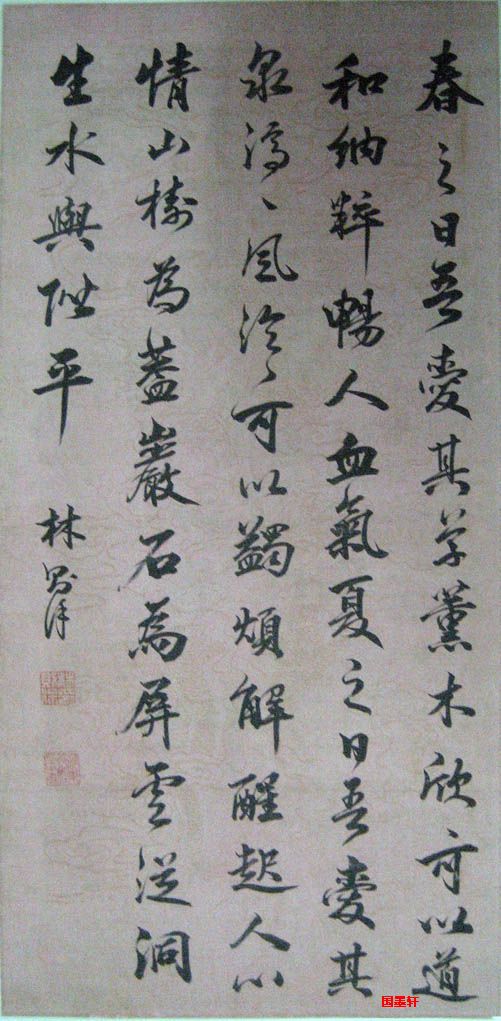 春之日吾愛其草薰木欣可以道
和納粹暢人血氣夏之日吾愛其
泉渟、風泠、可以蠲煩解酲起人心
情山樹為蓋巖石為屏雲從洞
生水與階平
林則徐
国墨轩